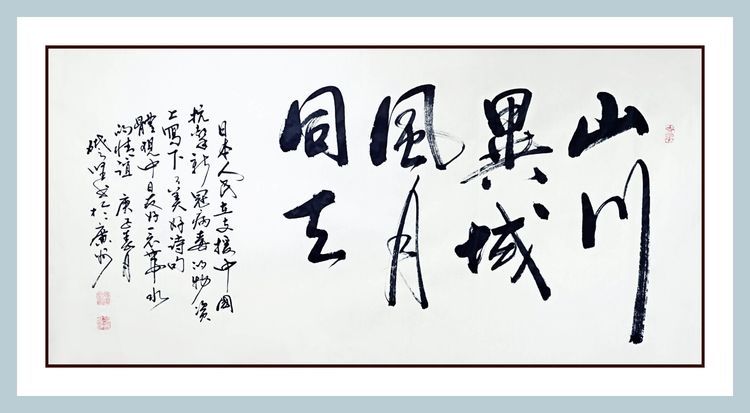 山川
異域
風月
同天
日本人民在支援中國
抗擊新冠病毒的物資
上寫下了美好诗句
體現中日友好一衣帶水
的情誼 庚子春月
书於廣州